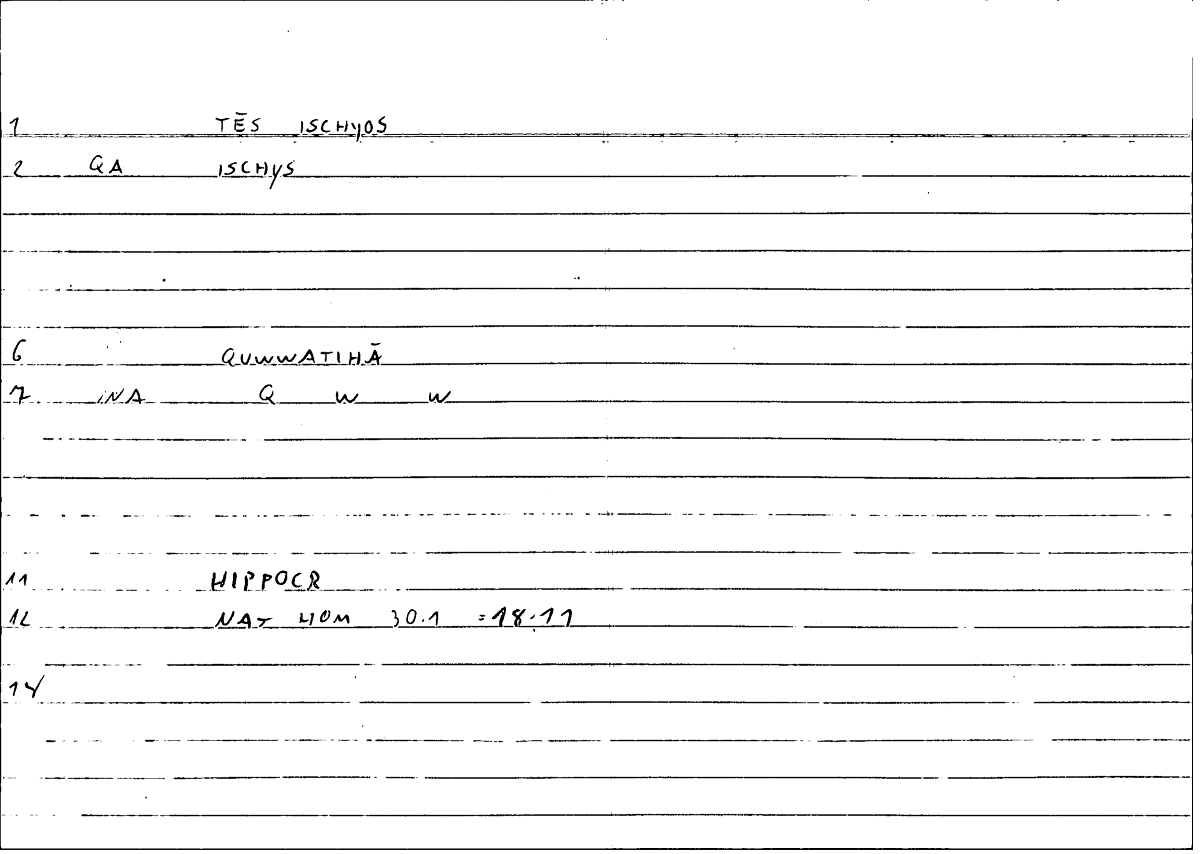 1 TĒS ISCHYOS
2 QA ISCHYS
6 QUWWATIHĀ
7 INA Q W W
11 HIPPOCR
12 NAT HOM 30.1 =18.11
14